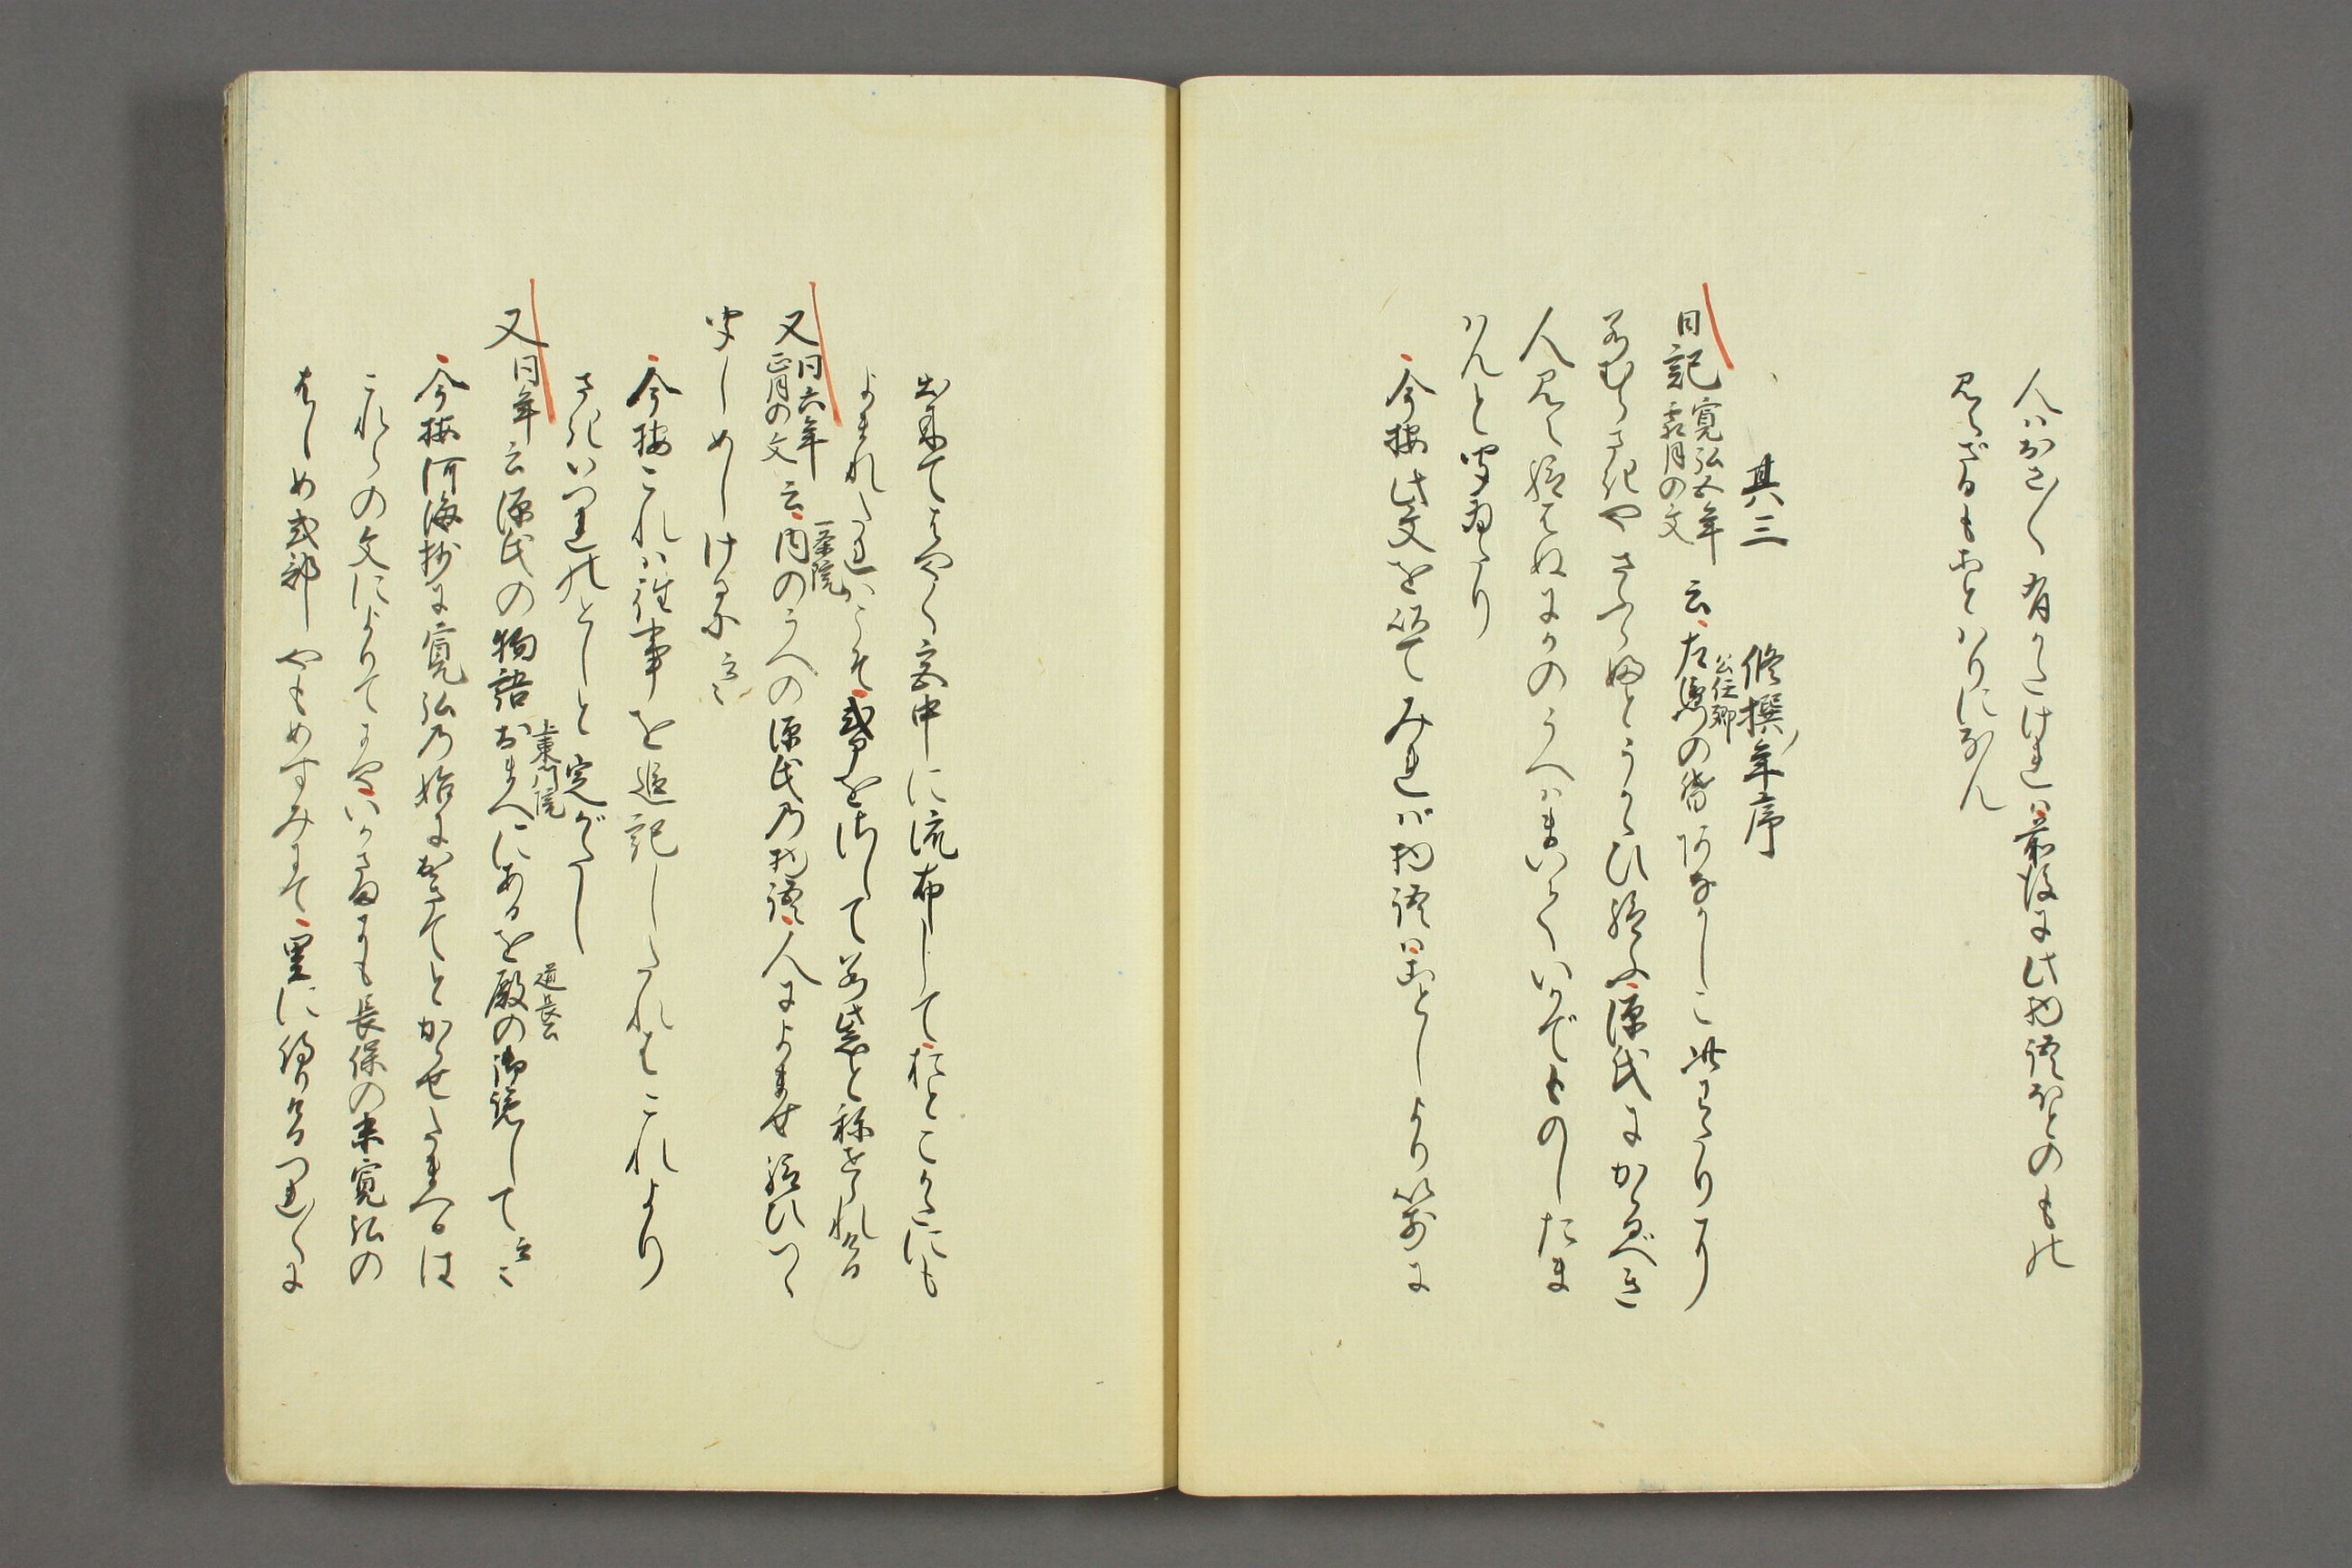 人はおさ〳〵有かたけれは前後に此物語ほとのもの
見えざるもことわりになん
其三　修撰年序
日記寛弘五年霜月の文云左衛門の督公任卿あなかしこ此わたりに
若むらさきやさふらふとうかゝひ給ふ源氏にかゝるべき
人見え給はぬにかのうへはまいていかでものしたま
はんと聞ゐたり
今按此文を以てみれば物語はことしより以前に
出来てはやく宮中に流布しておとこかたにも
よまれたれはこそ式部をさして若紫と称せられけれ
又同六年正月の文云内のうへの一条院源氏乃物語人によませ給ひつゝ
聞しめしけるに云々
今按これは往事を追記したれはこれより
さきいつれのとしと定がたし
又同年云源氏の物語おまへに上東門院あるを殿の道長公御覧して云々
今按河海抄に寛弘乃始におきてとかゝせたまへるは
これらの文によりてにやいかさまにも長保の末寛弘の
はしめ式部やもめすみにて里に侍りけるつれ〳〵に